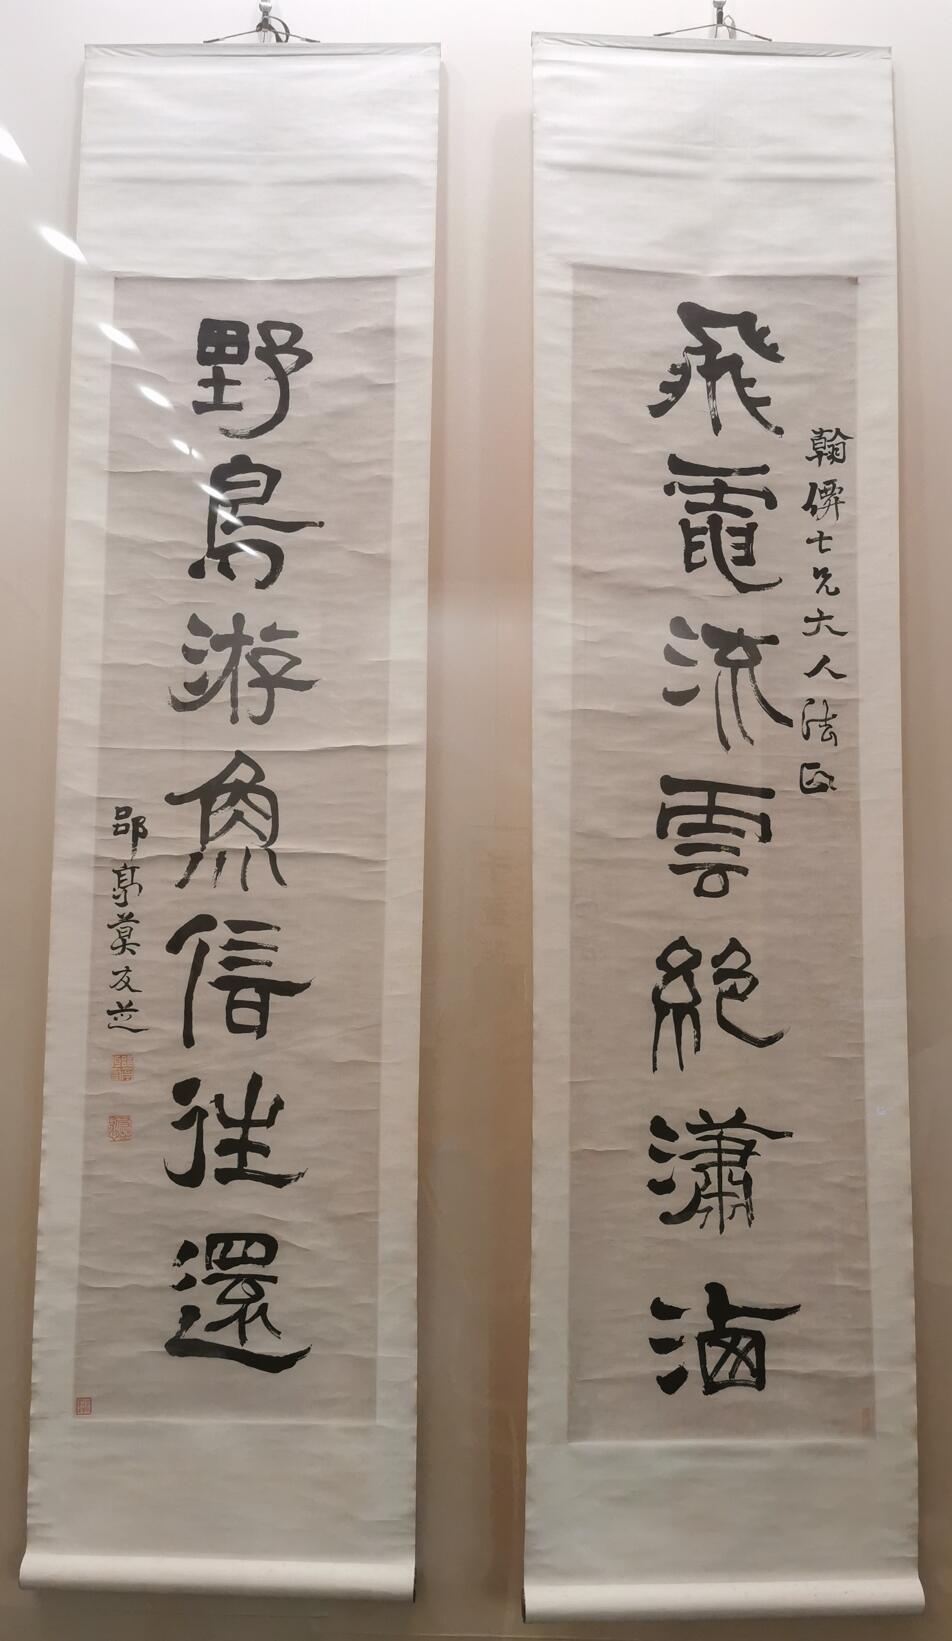 翰僊七兄大人法正
飛電流雲絶瀟洒
野鳥游魚信往還
郘亭莫友芝